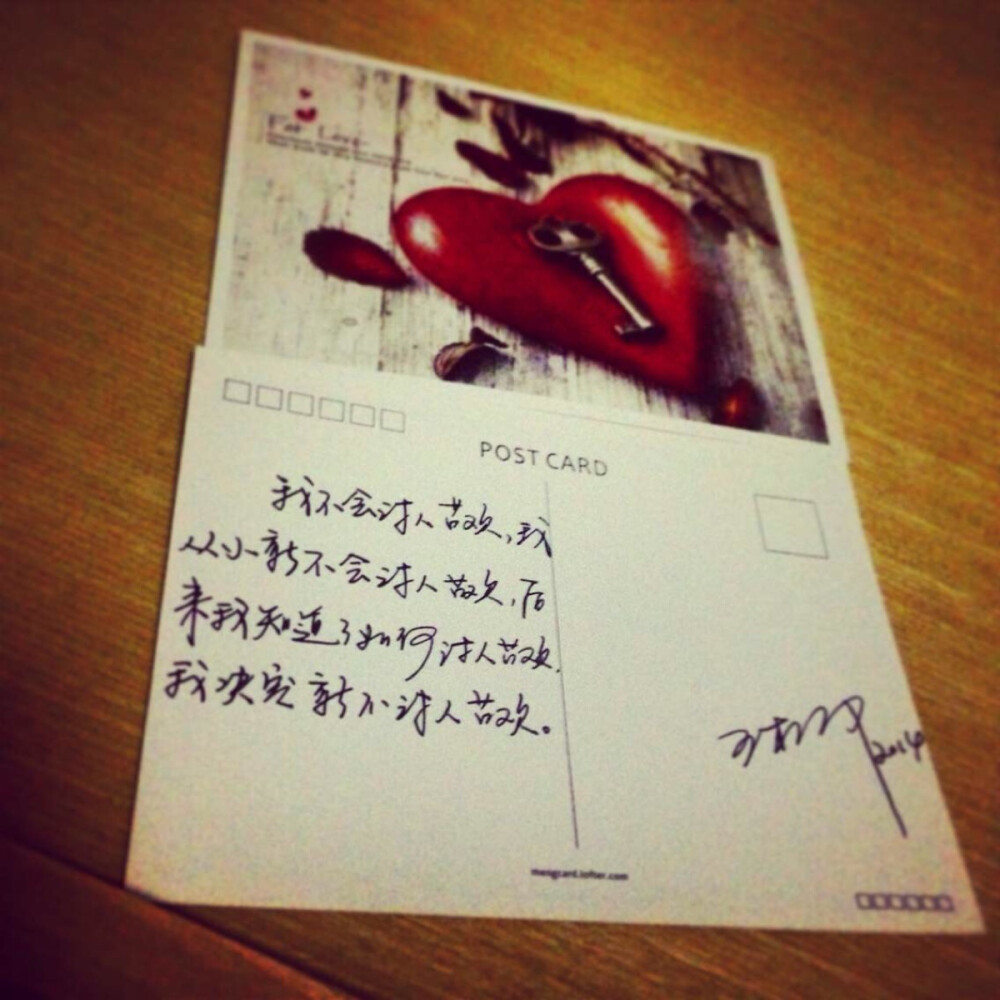 For Love
POST CARD
我不会讨人喜欢,我
从小就不会讨人喜欢,后
来我知道了如何讨人喜欢,
我决定就不讨人喜欢。
2014
mengcard.lofter.com